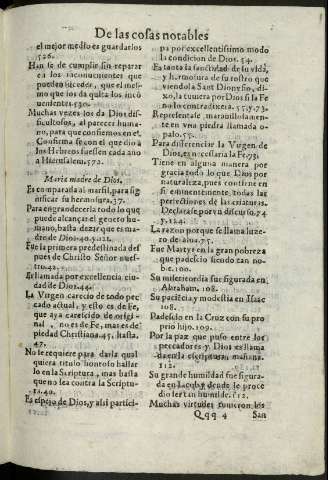 De las cosas notables
el mejor medio es guardarlos
526.
Han se de cumplir sin reparar
en los inconuenientes que
pueden suceder, que el mes-
mo que los da quita los inco
uenientes. 530.
Muchas vezes los da Dios dif-
ficultosos, al parecer huma-
no, para que confiemos en el.
Confirma se con el que dio a
los Hebreos fuessen cada año
a Hierusalem, 572.
Maria madre de Dios.
Es comparada al marfil, para sig
nificar su hermosura. 37.
Para engrandecerla todo lo que
puede alcançar el genero hu-
mano, basta dezir que es ma-
dre de Dios. 40. y. 121.
Fue la primera predestinada des
pues de Christo Señor nues-
tro. 42.
Es llamada por excellencia ciu-
dad de Dios. 44.
La Virgen carecio de todo pec
cado actual, y esto es de Fe,
que aya carecido de origi-
nal, no es de Fe, mas es de
piedad Christiana. 45. hasta.
47.
No se requiere para darla qual
quiera titulo honroso hallar
lo en la Scriptura, mas basta
que no sea contra la Scriptu-
ra. 49.
Es espejo de Dios, y assi partici-
pa por excellentissimo modo
la condicion de Dios. 54.
Es tanta la sanctidad de su vida,
y hermosura de su rostro que
viendola Sant Dionysio, di-
xo, la tuuiera por Dios si la Fe
no lo contradixera. 55. y. 73.
Representase marauillosamen-
te en vna piedra llamada o-
palo. 55.
Para differenciar la Virgen de
Dios, es necessaria la Fe. 73.
Tiene en alguna manera por
gracia todo lo que Dios por
naturaleza, pues contiene en
si eminentemente, todas las
perfectiones de las criaturas.
Declarase por vn discurso. 74
y. 124.
La razon porque se llama luze-
ro de alua. 75.
Fue Martyr en la gran pobreza
que padecio siendo tan no-
ble. 100.
Su misericordia fue figurada en
Abraham. 108.
Su paciencia y modestia en Isaac
108.
Padescio en la Cruz con su pro
prio hijo. 109.
Por la paz que puso entre los
peccadores y Dios es llama
da en la escriptura, mañana.
112.
Su grande humildad fue figura-
da en Iacob, y desde le proce
dio ser tan humilde. 112.
Muchas virtudes tuuieron los
Qqq 4 San